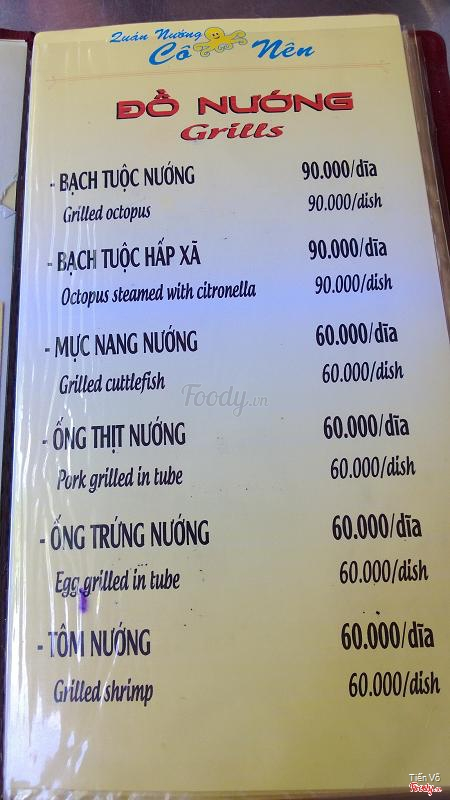 Quán Nướng
Cô Nên
ĐỒ NƯỚNG
Grills
- BẠCH TUỘC NƯỚNG 90.000/dĩa
Grilled octopus 90.000/dish
- BẠCH TUỘC HẤP XÃ 90.000/dĩa
Octopus steamed with citronella 90.000/dish
- MỰC NANG NƯỚNG 60.000/dĩa
Grilled cuttlefish 60.000/dish
Foody.vn
- ỐNG THỊT NƯỚNG 60.000/dĩa
Pork grilled in tube 60.000/dish
- ỐNG TRỨNG NƯỚNG 60.000/dĩa
Egg grilled in tube 60.000/dish
- TÔM NƯỚNG 60.000/dĩa
Grilled shrimp 60.000/dish
Tiến Võ
Foody.vn